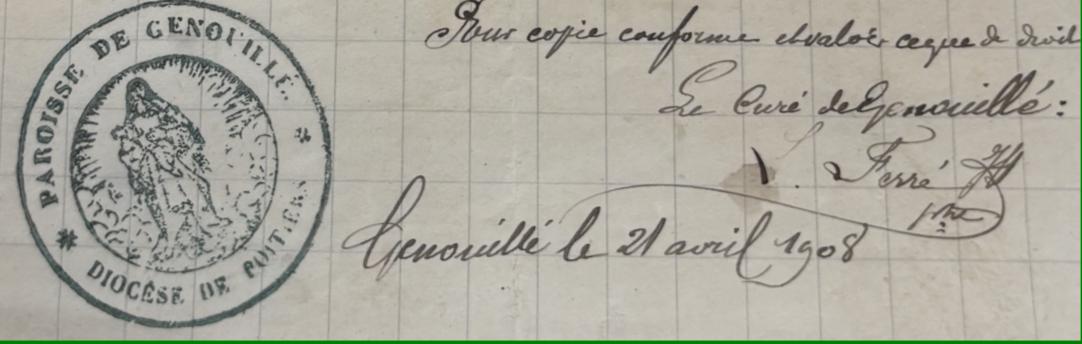 PAROISSE DE GENOUILLÉ.
DIOCÈSE DE POITIERS
Pour copie conforme et valoir ce que de droit
Le Curé de Genouillé:
Ferré
ptre
Genouillé le 21 avril 1908